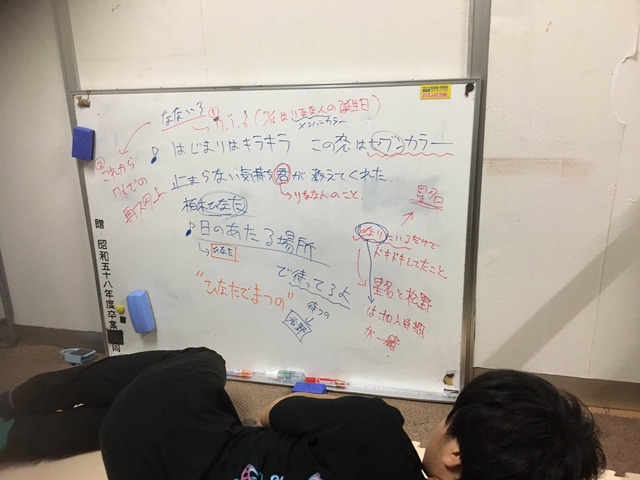 なないろ
① (7/4はりななんの誕生日)
メンバーカラー
② これから
7人での
♪ はじまりはキラキラ この恋はセブンカラー
止まらない気持ち 君が教えてくれた
りななんのこと。
星名
柏木ひなた
♪日のあたる場所
ひなた
で待ってるよ
待つの
松野
"ひなたでまつの"
となりにいるだけで
ドキドキしてたこと。
星名と松野
は加入時期
が一緒
贈 昭和五十八年度卒業